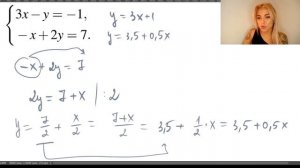 3x − y = −1,    y = 3x+1
−x + 2y = 7.    y = 3,5 + 0,5x
−x + 2y = 7
2y = 7 + x | : 2
y = 7/2 + x/2 = (7+x)/2 = 3,5 + 1/2 · x = 3,5 + 0,5x